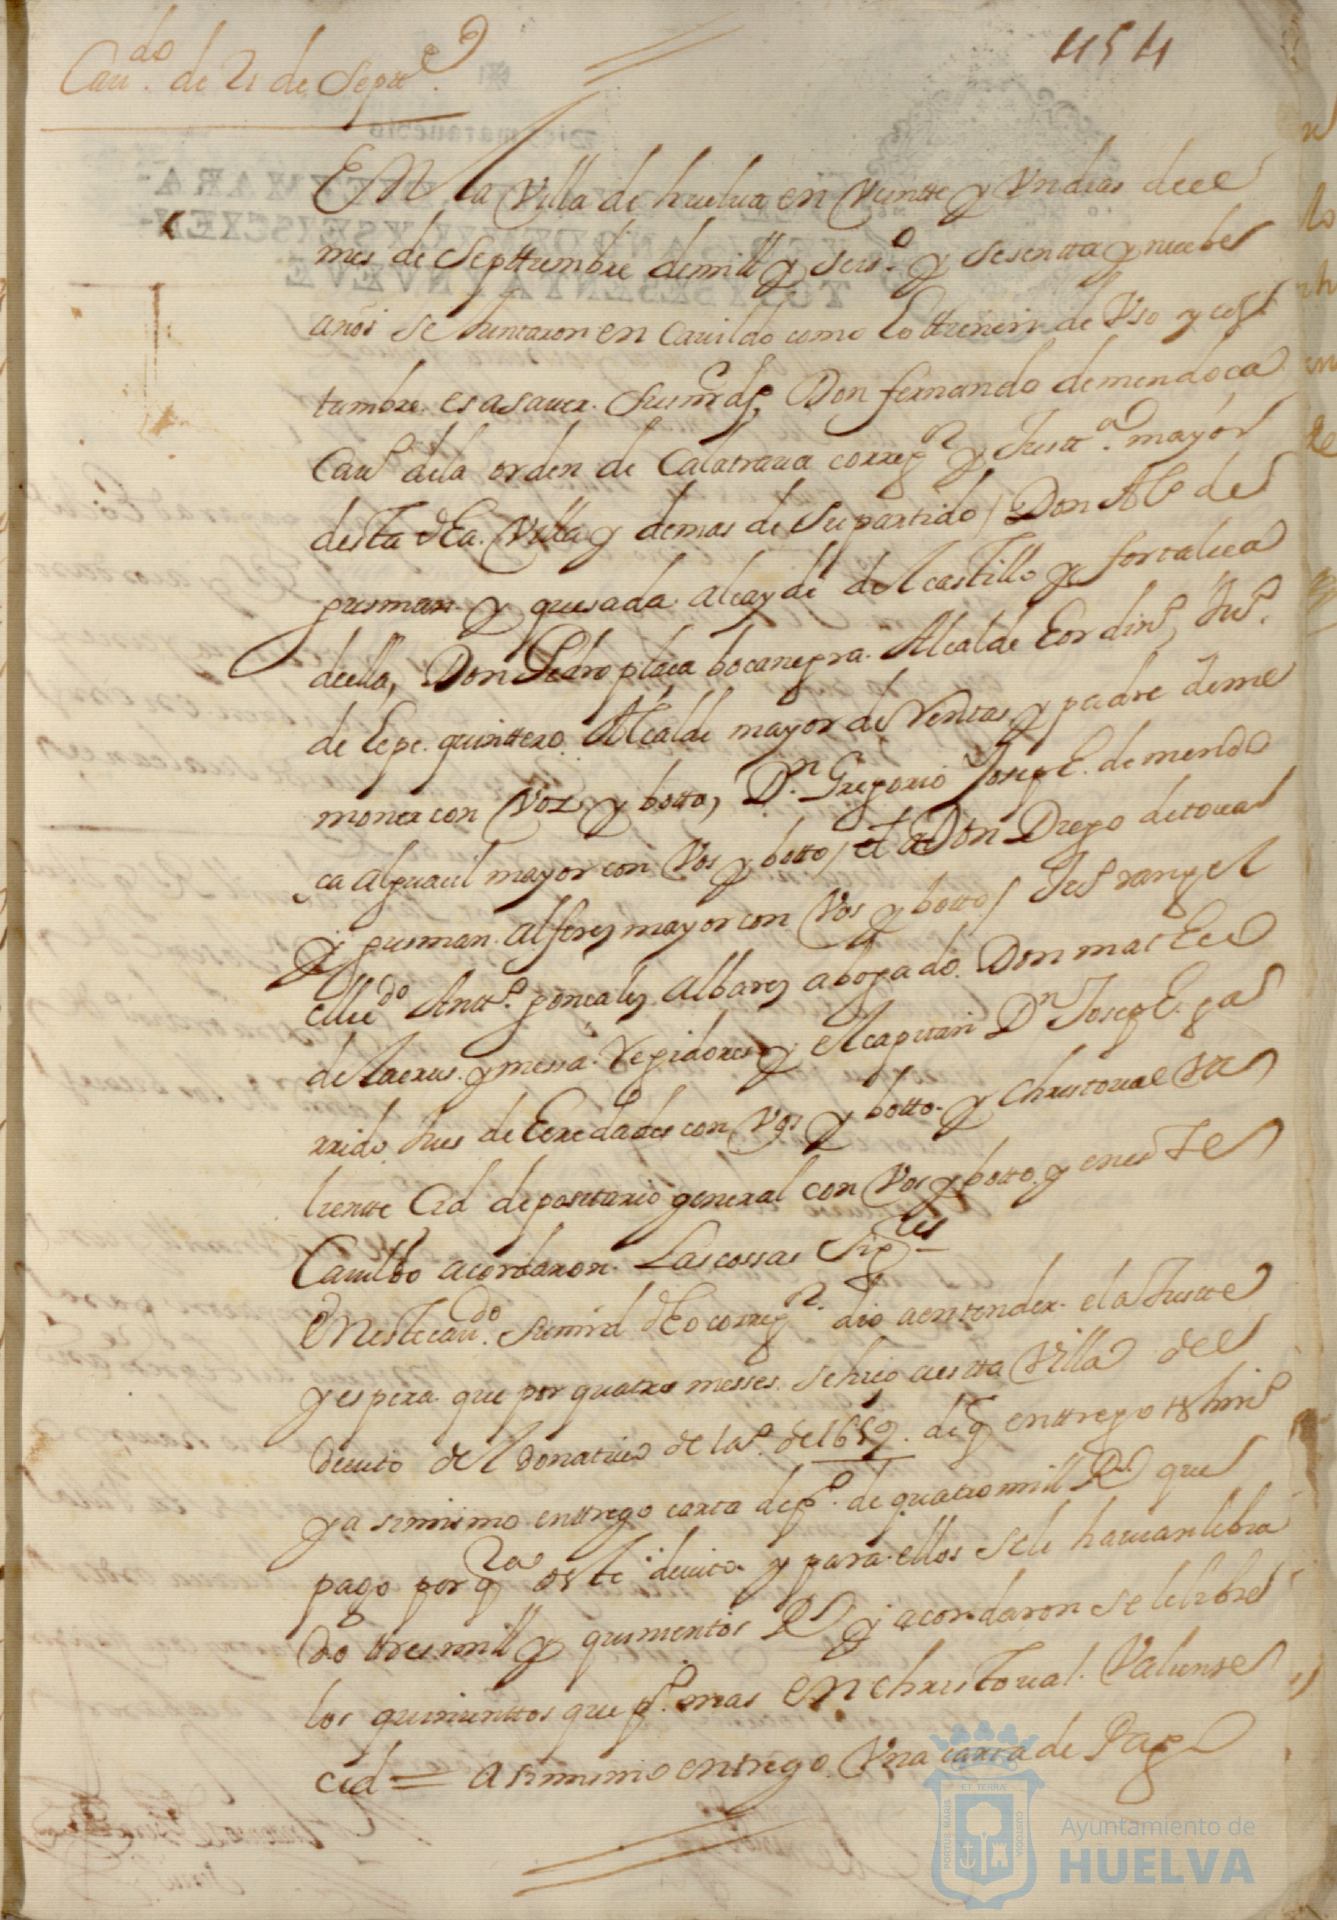 Cau.do de 21 de Sepre
454
EN la Villa de huelua en Viente y Vn dias de el
mes de Septtiembre de mill y seis.o y sesentta y nuebe
años se Juntaron en Cauildo como lo tienen de Vso y cos
tumbre es a sauer. Su mrd, Don fernando de mendoça
Cauo de la orden de Calatraua correg.r y Justt.a mayor
desta dha. Villa y demas de su partido / Don Alo de
gusman y quesada alcayde del castillo y fortaleça
de ella, Don Pedro plaça bocanegra. Alcalde hordino, Juo.
de Lepe quinttero. Alcalde mayor de Ventas y padre de me
nores con Voz y botto, D.n Gregorio Joseph de mendo
ça alguacil mayor con Vos y botto / Don Diego de touar
y gusman. alferez mayor con Vos y botto / Juo rangel
el licdo Antt.o gonçalez Albarez abogado. Don mathe
de la crus y mesa. Regidores y el capitan D.n Joseph ga
rrido Jues de heredades con Vos y botto y Christoual Va
liente Cid depositario general con Vos y botto y en este
Cauildo acordaron. Las cossas sigtes
EN este cau.do su mrd dho correg.r dio a entender. el a Justte
y espera que por quatro messes. se hiço a estta Villa del
deuito del donatiuo de la.o del 1659. de q enttrego
y asimismo enttrego carta de p.o de quatro mill Rs que
pago por qta deste deuito y para ellos se le hauian libra
do tres mill y quinientos Rs y acordaron se le libre
los quinienttos que po. mas EN Christoual. Valiente
Cid = Asimimo entrego Vna carta de Pag
PORTUS MARIS ET TERRÆ CUSTODIA
Ayuntamiento de
HUELVA